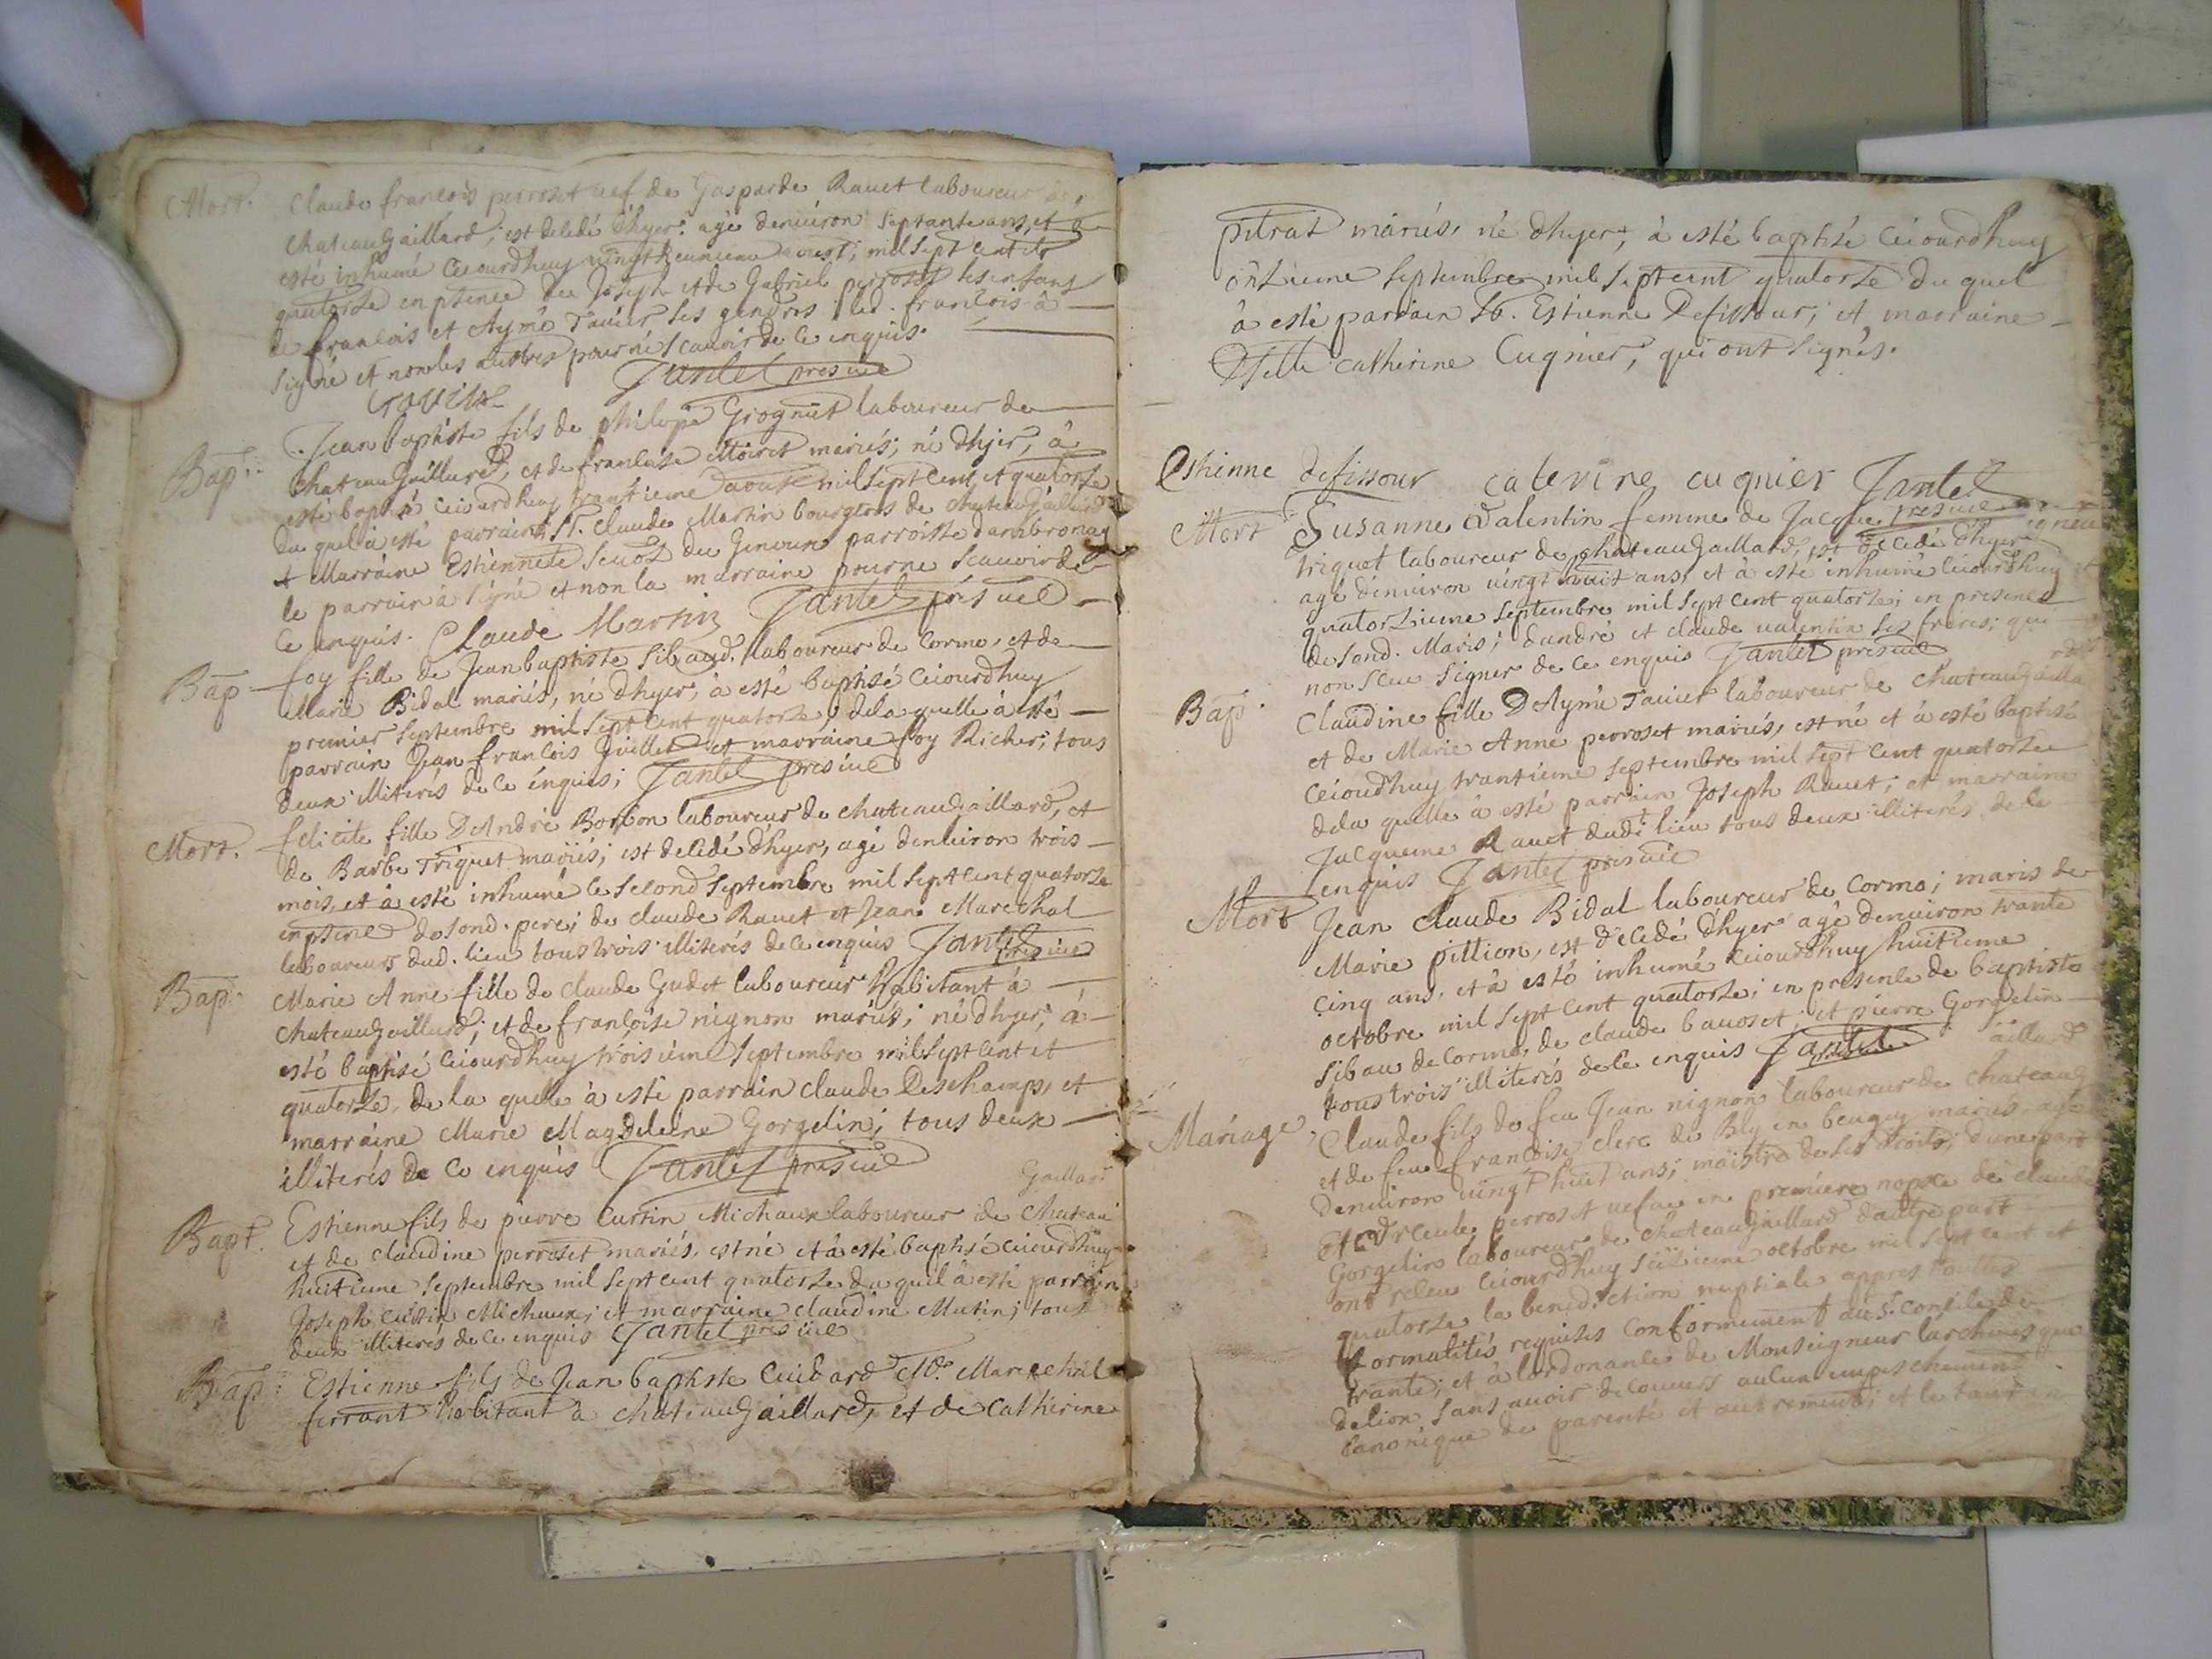 Mort. Claude francois perroset vef de Gasparde Ravet laboureur de
chateaugaillard; est decedé dhyer. agé denuiron septante ans, et a
esté inhumé ceiourdhuy vingt neuvieme aoust; mil sept cent et
quatorse en psence de Joseph et de Gabriel perroset ses enfans
de francois et Aymé Tavier ses gendres led. francois à
signé et non les autres pour né scavoir de ce enquis.
Jantet presvic
Bap. Jean baptiste fils de philipe Grognut laboureur de
chateaugaillard, et de francoise Moiret mariés; né dhjer, à
esté baptisé ceiourdhuy trantieme daoust mil sept cent et quatorse
du quel à esté parrain Sr. Claude Martin bourgeois de chateaugaillard
et Marraine Estiennete du Genoux parroisse dambronay
le parrain à signé et non la marraine pour ne scavoir de
ce enquis. Claude Martin Jantet présvic
Bap foy fille de Jean baptiste Sibaud laboureur de Cormo, et de
Marie Bidal mariés, né dhyer, à esté baptisé ceiourdhuy
premier septembre mil sept cent quatorse, de la quelle à esté
parrain Jean francois Guillet et marraine foy Richer; tous
deux illiterés de ce énquis; Jantet presvic
Mort. felicite fille D'André Borbon laboureur de chateaugaillard, et
de Barbe Triquet mariés; est decedé dhyer, agé denuiron trois
mois, et à esté inhumé le second septembre mil sept cent quatorse
en psence de sond. pere; de claude Ravet et Jean Marechal
laboureurs dud. lieu tous trois illiterés de ce enquis Jantet presvic
Bap. Marie Anne fille de claude Gudet laboureur habitant à
chateaugaillard; et de francoise nignon mariés; né dhyer, à
esté baptisé ceiourdhuy troisieme septembre mil sept cent et
quatorse, de la quelle à esté parrain claude Deschamps, et
marraine Marie Magdeleine Gorgelin; tous deux
illiterés de ce enquis Jantet presvic
Gaillard
Bapt. Estienne fils de pierre Curtin Michaux laboureur de Chateau
et de claudine perroset mariés, est né et à esté baptisé ceiourdhuy
huitieme septembre mil sept cent quatorse du quel à esté parrain
Joseph Curtin Michaux; et marraine claudine Mutin; tous
deux illiterés de ce enquis Jantet presvic
Bap: Estienne fils de Jean baptiste Cuibard Me. Marechal
ferrant habitant à chateaugaillard, et de Catherine
pitrat mariés, né dhyer, à esté baptisé ceiourdhuy
onzieme septembre mil sept cent quatorse du quel
à esté parrain Sr. Estienne Defissour; et marraine
Dselle catherine Cugnier, qui ont signés.
Estienne defissour caterine cugnier Jantet
presvic
Mort Susanne Valentin femme de Jacque
triquet laboureur de chateaugaillard, est decedé dhyer
agé denuiron vingt huit ans, et à esté inhumé ceiourdhuy
quatorzieme septembre mil sept cent quatorse; en presence
de sond. Maris; dandré et claude valentin ses freres; qui
non sceu signer de ce enquis Jantet presvic
Bap. Claudine fille D'Aymé Tavier laboureur de chateaugailla
rd
et de Marie Anne perroset mariés, est né et à esté baptisé
ceioudhuy trantieme septembre mil sept cent quatorse
de la quelle à esté parrain Joseph Ravet; et marraine
Jacqueme Ravet dudt lieu tous deux illiterés de ce
enquis Jantet presvic
Mort Jean Claude Bidal laboureur de Cormo; maris de
Marie pillion, est decedé dhyer agé denuiron trante
cinq ans, et à esté inhumé ceiourdhuy huitieme
octobre mil sept cent quatorse; en presence de baptiste
Sibau de Cormo, de claude bavoset; et pierre Gorgelin
tous trois illiterés de ce enquis Jantet presvic
aillard
Mariage. Claude fils de feu Jean nignon laboureur de chateaug
et de feu francoise clerc de Bly en beugey mariés agé
denuiron vingt huit ans; maistre de ses droits, dune part
Et perroset vefve en premiere nopce de claude
Gorgelin laboureur de chateaugaillard dautre part
ont receu ceiourdhuy seizieme octobre mil sept cent et
quatorse la benediction nuptiale appres toutes
formalités requises conformement au St. concile de
trante; et à lordonance de Monseigneur larchevesque
de lion sans avoir decouvers aucun empeschement
canonique de parenté et autrement; et le tout